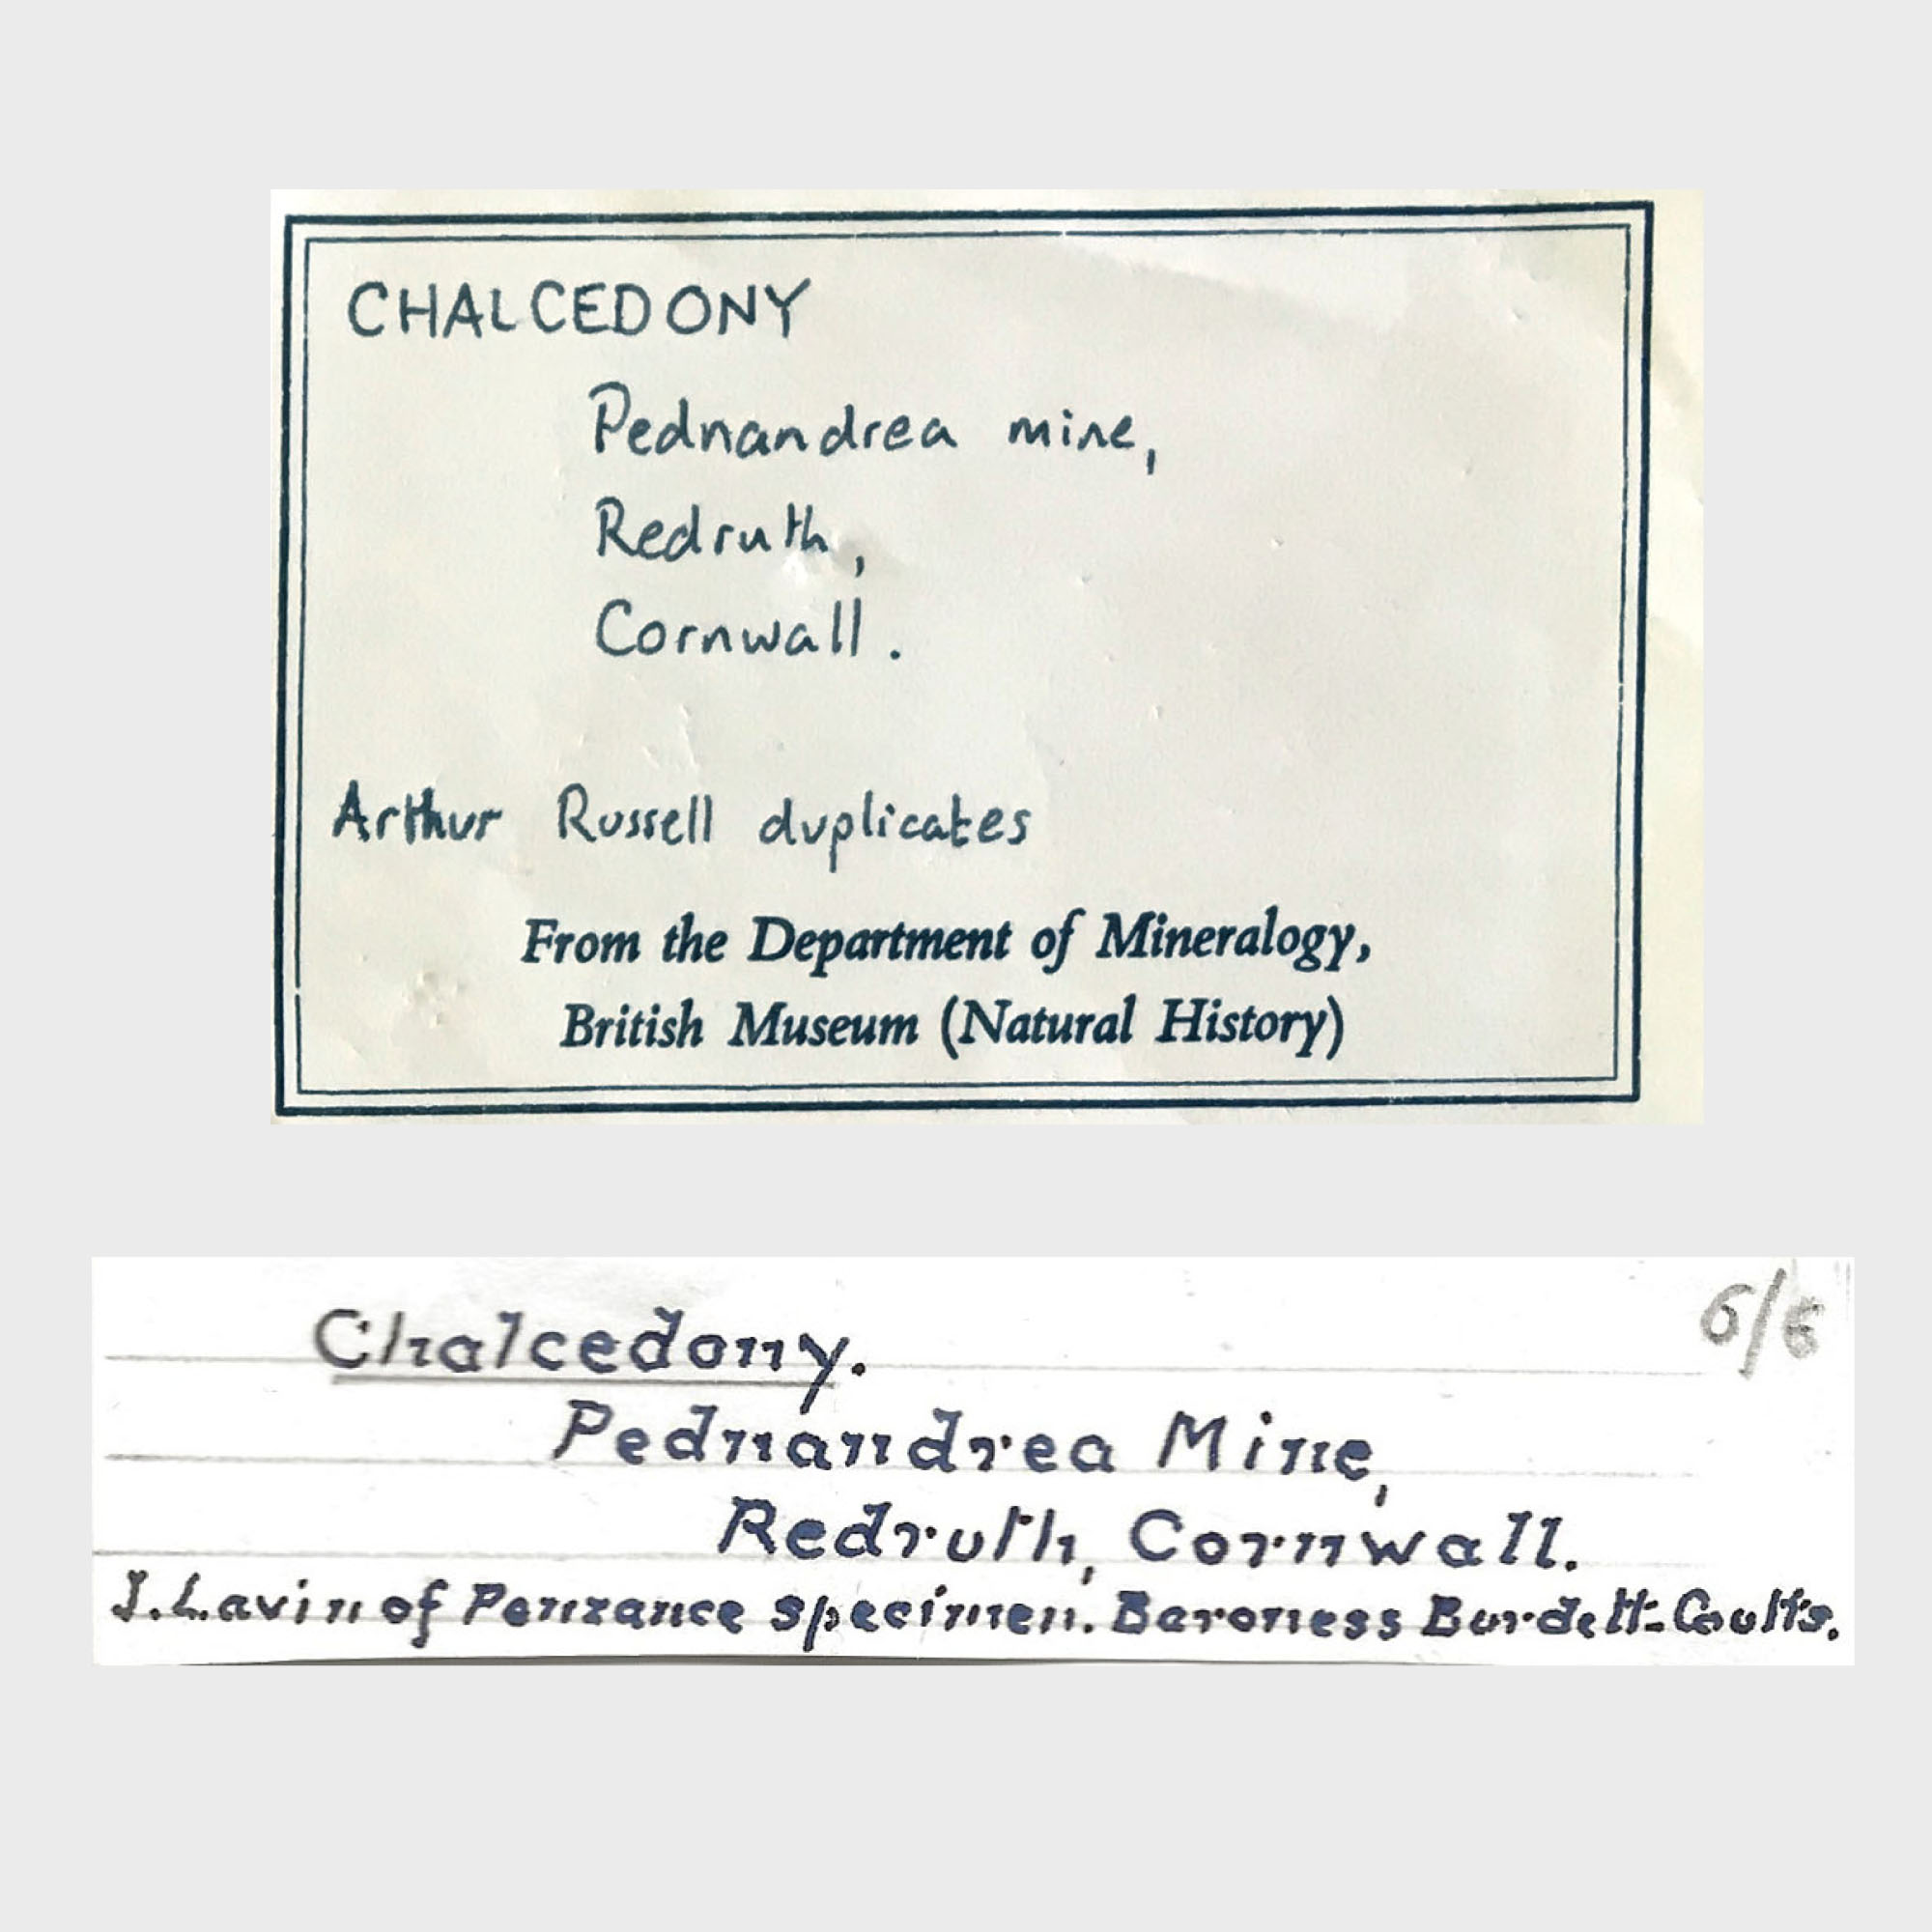 CHALCEDONY
Pednandrea mine,
Redruth,
Cornwall.
Arthur Russell duplicates
From the Department of Mineralogy,
British Museum (Natural History)
6/6
Chalcedony.
Pednandrea Mine,
Redruth, Cornwall.
J. Lavin of Penzance specimen. Baroness Burdett-Coutts.